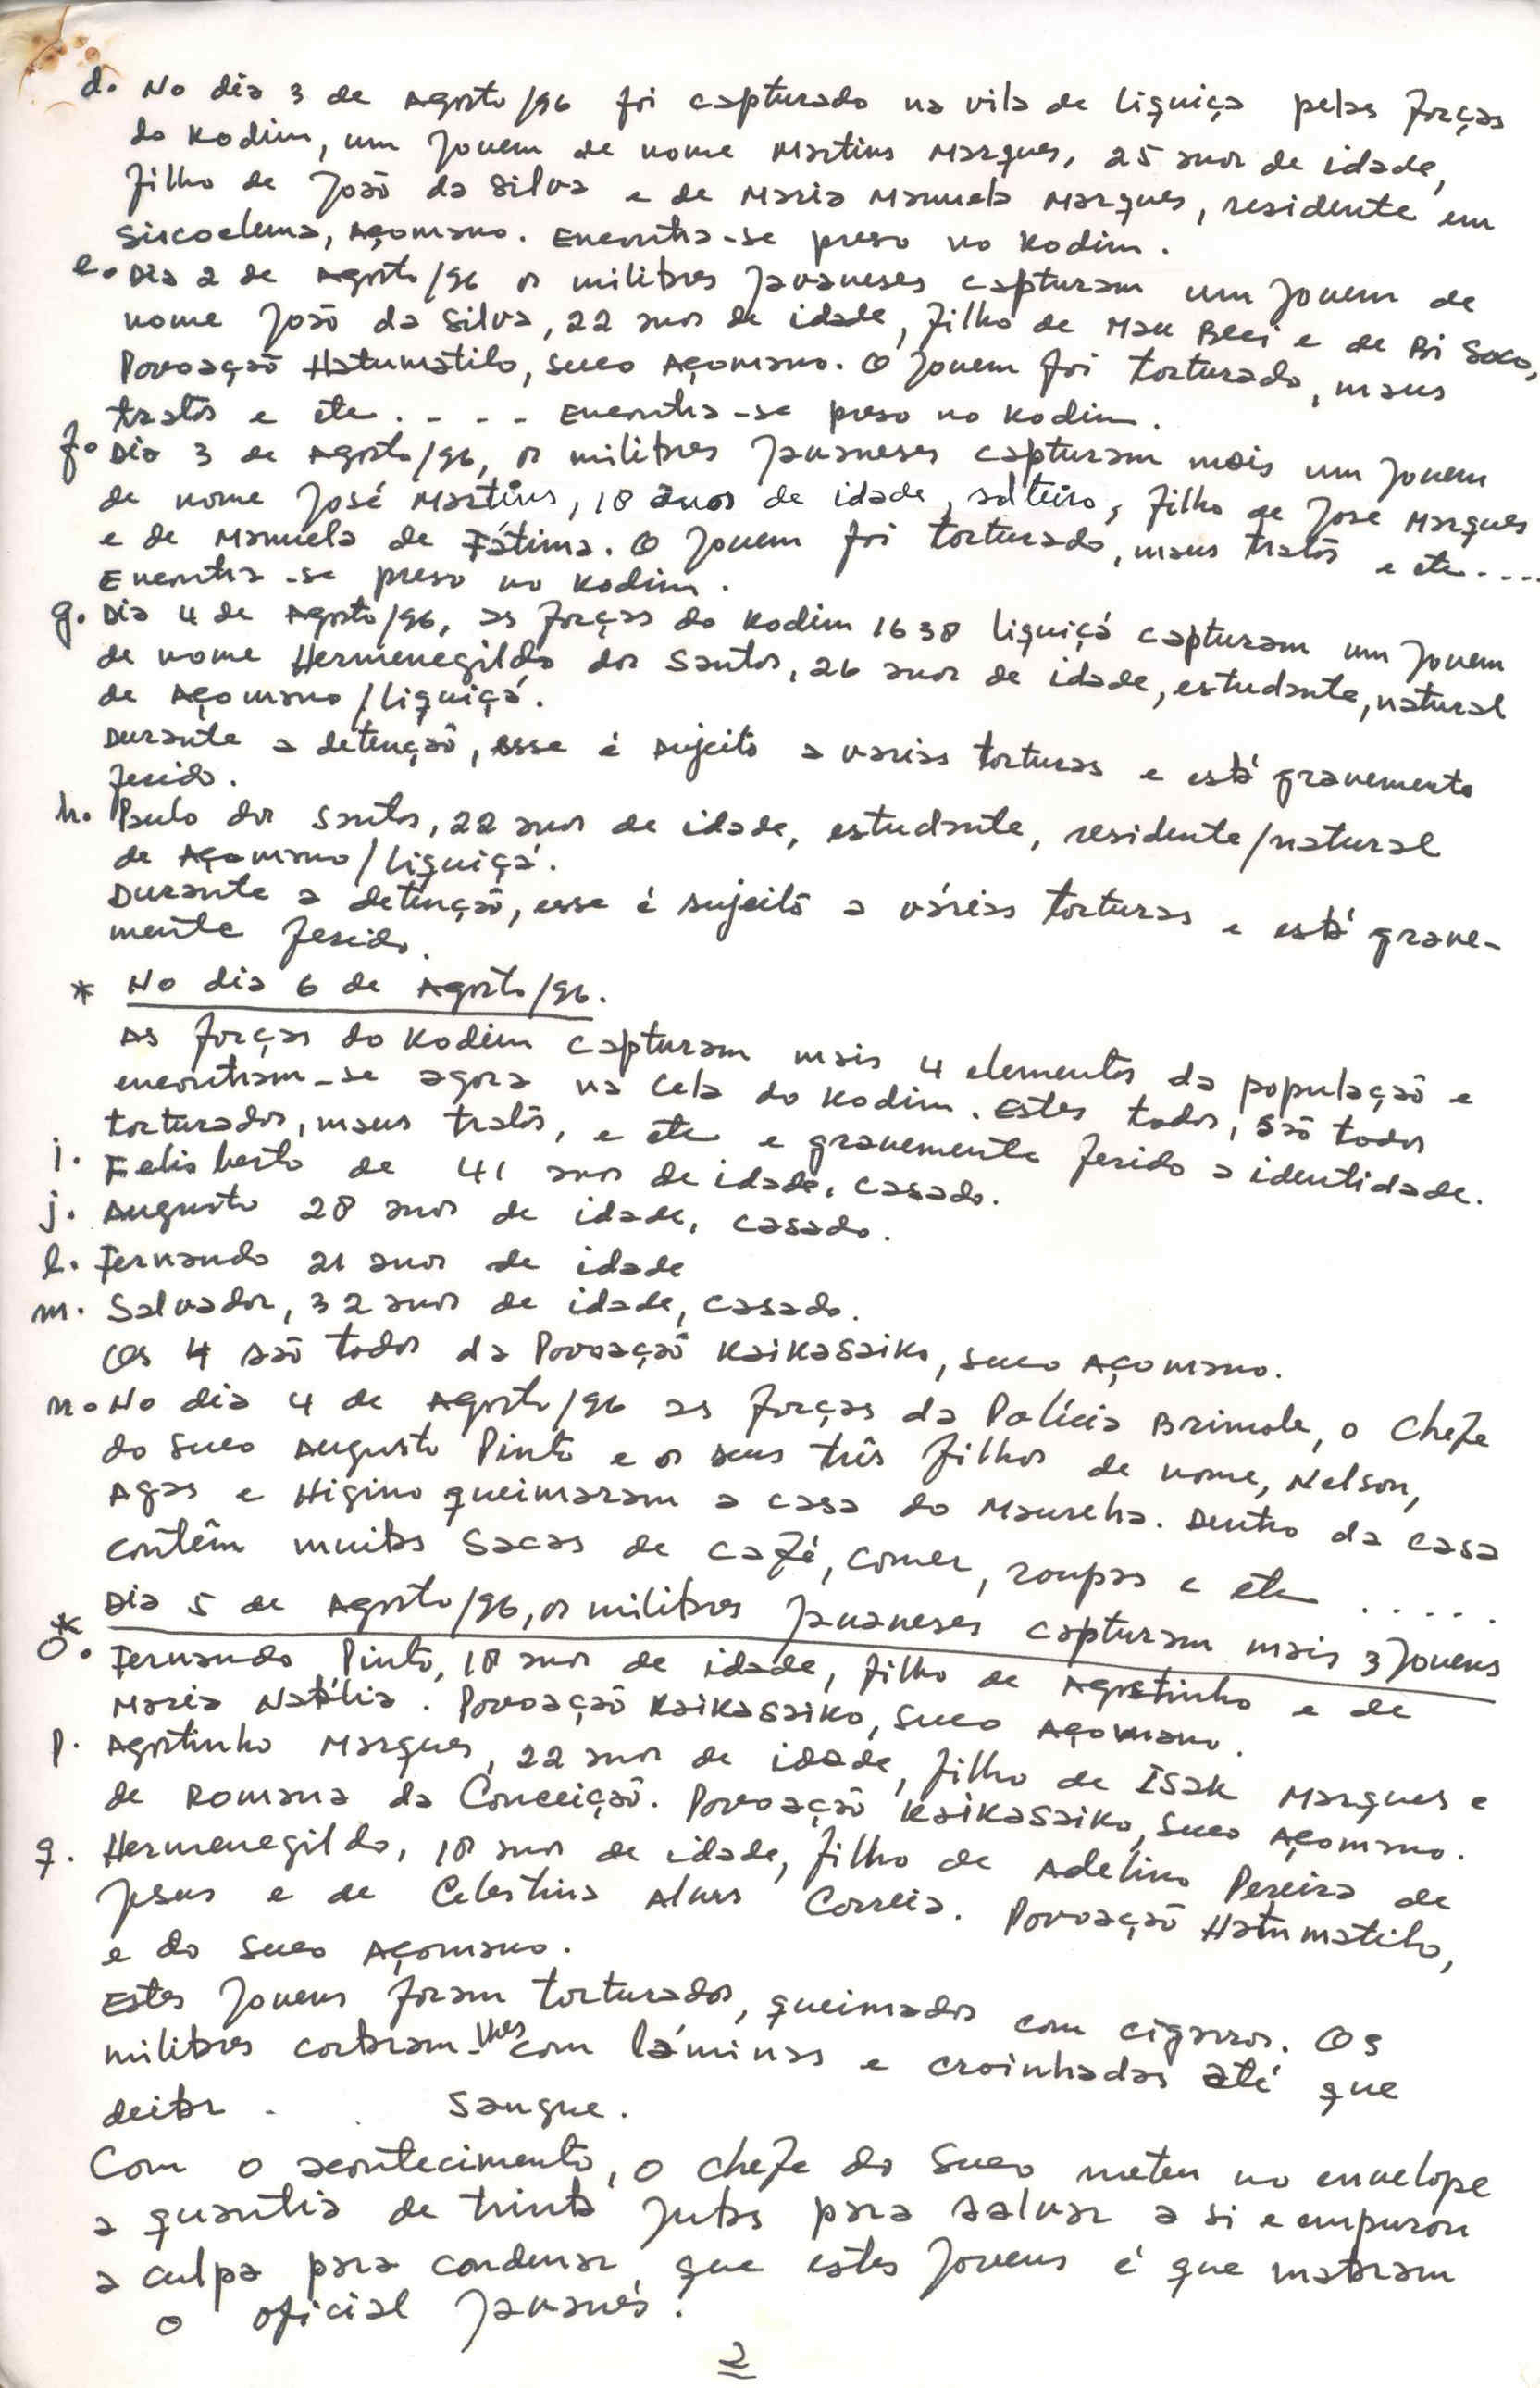 d. No dia 3 de Agosto/96 foi capturado na vila de Liquiça pelas forças
do Kodim, um jovem de nome Martins Marques, 25 anos de idade,
filho de João da Silva e de Maria Manuela Marques, residente em
Siscoelema, Açomano. Encontra-se preso no Kodim.
e. Dia 2 de Agosto/96 os militares Javaneses capturam um jovem de
nome João da Silva, 22 anos de idade, filho de Mau Beci e de Bi Soco,
Povoação Hatumatilo, suco Açomano. O jovem foi torturado, maus
tratos e etc. - - - Encontra-se preso no Kodim.
f. Dia 3 de Agosto/96, os militares Javaneses capturam mais um jovem
de nome José Martins, 18 anos de idade, solteiro, filho de José Marques
e de Manuela de Fátima. O jovem foi torturado, maus tratos e etc....
Encontra-se preso no Kodim.
g. Dia 4 de Agosto/96, as forças do Kodim 1638 Liquiçá capturam um jovem
de nome Hermenegildo dos Santos, 26 anos de idade, estudante, natural
de Açomano/Liquiçá.
Durante a detenção, esse é sujeito a varias torturas e está gravemente
ferido.
h. Paulo dos Santos, 22 anos de idade, estudante, residente/natural
de Açomano/Liquiçá.
Durante a detenção, esse é sujeito a várias torturas e está grave-
mente ferido.
* No dia 6 de Agosto/96.
As forças do Kodim capturam mais 4 elementos da população e
encontram-se agora na cela do Kodim. Estes todos, são todos
torturados, maus tratos, e etc e gravemente ferido a identidade.
i. Felisberto de 41 anos de idade, casado.
j. Augusto 28 anos de idade, casado.
l. Fernando 21 anos de idade
m. Salvador, 32 anos de idade, casado.
Os 4 são todos da Povoação Kaikasaiko, suco Açomano.
n. No dia 4 de Agosto/96 as forças da Polícia Brimob, o Chefe
do suco Augusto Pinto e os seus três filhos de nome, Nelson,
Agas e Higino queimaram a casa do Maureha. Dentro da casa
contêm muitas sacas de café, comer, roupas e etc .....
* Dia 5 de Agosto/96, os militares Javaneses capturam mais 3 Jovens
o. Fernando Pinto, 18 anos de idade, filho de Agostinho e de
Maria Natália. Povoação Kaikasaiko, suco Açomano.
p. Agostinho Marques, 22 anos de idade, filho de Isak Marques e
de Romana da Conceição. Povoação Kaikasaiko, suco Açomano.
q. Hermenegildo, 18 anos de idade, filho de Adelino Pereira de
Jesus e de Celestina Alves Correia. Povoação Hatumatilo,
e do suco Açomano.
Estes jovens foram torturados, queimados com cigarros. Os
militares cortaram-lhes com láminas e croinhadas até que
deitar . . sangue.
Com o acontecimento, o chefe do Suco meteu no envelope
a quantia de trinta jutas para salvar a si e empurou
a culpa para condenar que estes jovens é que mataram
o oficial Javanês.
2